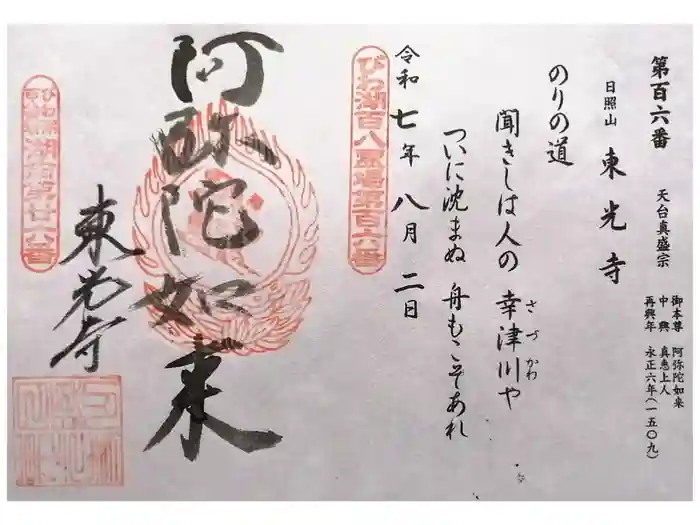 第百六番　天台真盛宗
御本尊　阿弥陀如来
中興　真恵上人
再興年　永正六年(一五〇九)
日照山　東光寺
のりの道
聞きしは人の　幸津川や
さづかわ
ついに沈まぬ　舟もこそあれ
令和七年八月二日
びわ湖百八霊場第百六番
阿弥陀如来
東光寺